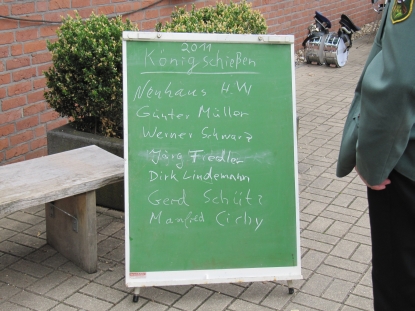 2011
Königschießen
Neuhaus H.W
Günter Müller
Werner Schwarz
Jörg Fiedler
Dirk Lindemann
Gerd Schütz
Manfred Cichy